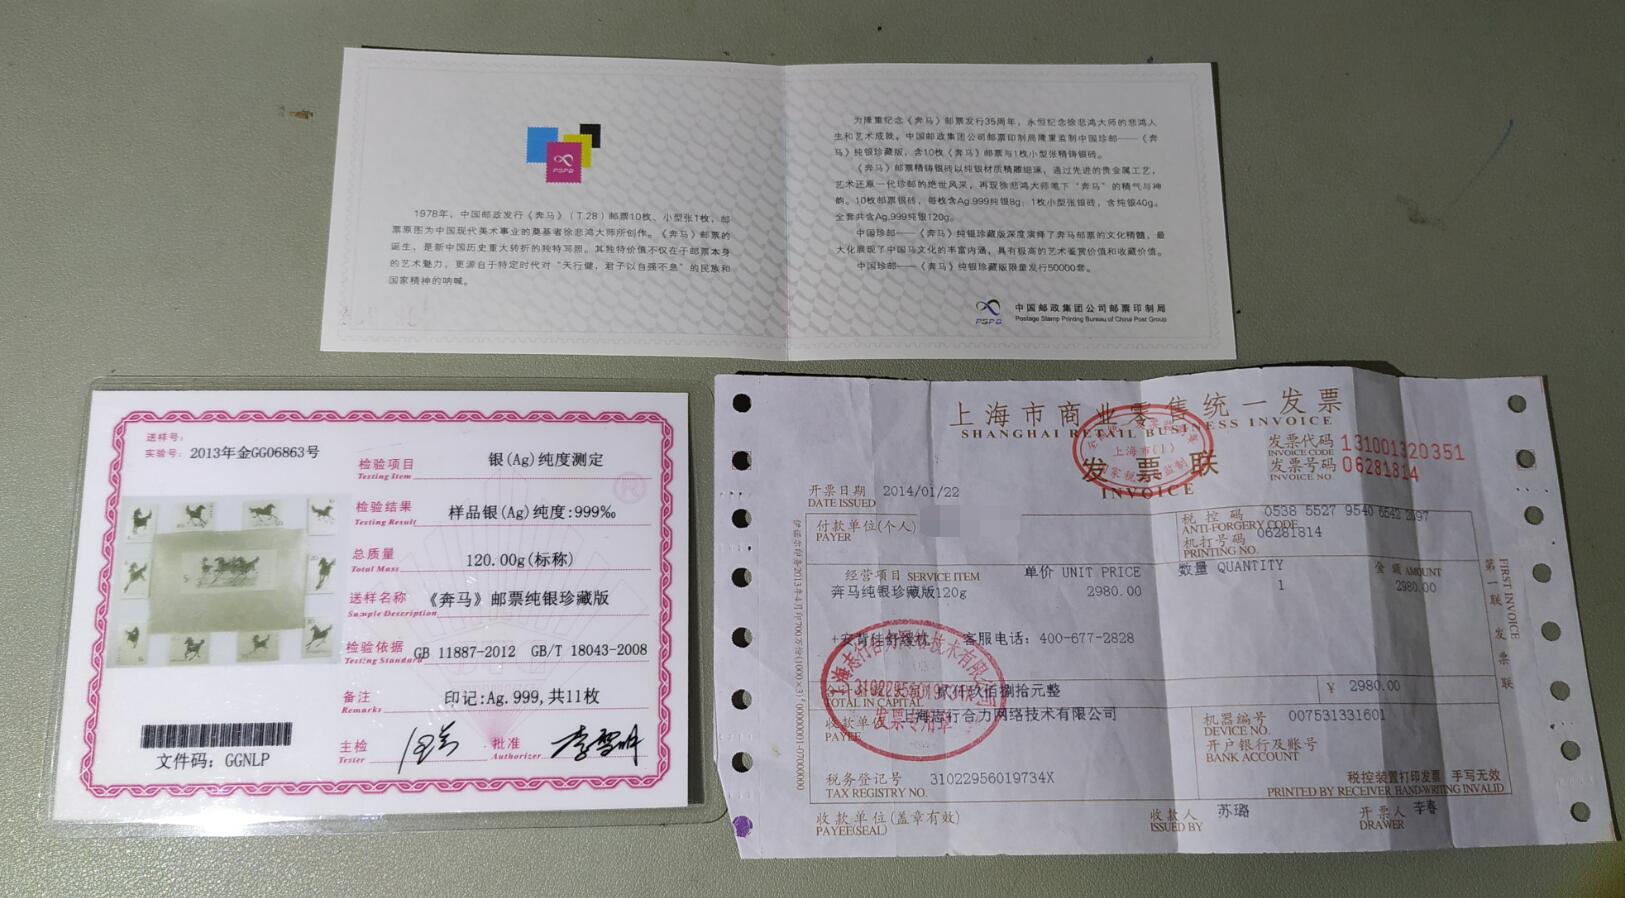 PSPB
1978年，中国邮政发行《奔马》（T.28）邮票10枚、小型张1枚，邮
票原图为中国现代美术事业的奠基者徐悲鸿大师所创作。《奔马》邮票的
诞生，是新中国历史重大转折的独特写照。其独特价值不仅在于邮票本身
的艺术魅力，更源自于特定时代对“天行健，君子以自强不息”的民族和
国家精神的呐喊。
为隆重纪念《奔马》邮票发行35周年，永恒纪念徐悲鸿大师的悲鸿人
生和艺术成就。中国邮政集团公司邮票印制局隆重监制中国珍邮——《奔
马》纯银珍藏版，含10枚《奔马》邮票与1枚小型张精铸银砖。
《奔马》邮票精铸银砖以纯银材质精雕细琢，通过先进的贵金属工艺，
艺术还原一代珍邮的绝世风采，再现徐悲鸿大师笔下“奔马”的精气与神
韵。10枚邮票银砖，每枚含Ag.999纯银8g；1枚小型张银砖，含纯银40g。
全套共含Ag.999纯银120g。
中国珍邮——《奔马》纯银珍藏版深度演绎了奔马邮票的文化精髓，最
大化展现了中国马文化的丰富内涵，具有极高的艺术鉴赏价值和收藏价值。
中国珍邮——《奔马》纯银珍藏版限量发行50000套。
PSPB
中国邮政集团公司邮票印制局
Postage Stamp Printing Bureau of China Post Group
送样号：
实验号：2013年金GG06863号
检验项目 银(Ag)纯度测定
Testing Item
检验结果 样品银(Ag)纯度:999‰
Testing Result
总质量 120.00g(标称)
Total Mass
送样名称 《奔马》邮票纯银珍藏版
Sample Description
检验依据 GB 11887-2012 GB/T 18043-2008
Testing Standard
备注 印记:Ag.999,共11枚
Remarks
主检
Tester
批准 李雪明
Authorizer
文件码：GGNLP
上海市商业零售统一发票
SHANGHAI RETAIL BUSINESS INVOICE
发票联
INVOICE
上海市(1)
发票代码 131001320351
INVOICE CODE
发票号码 06281814
INVOICE NO.
开票日期 2014/01/22
DATE ISSUED
付款单位(个人)
PAYER
税控码 0538 5527 9540 6542 2097
ANTI-FORGERY CODE
机打号码 06281814
PRINTING NO.
经营项目 SERVICE ITEM 单价 UNIT PRICE 数量 QUANTITY 金额 AMOUNT
奔马纯银珍藏版120g 2980.00 1 2980.00
客服电话: 400-677-2828
贰仟玖佰捌拾元整 ¥ 2980.00
TOTAL IN CAPITAL
收款单位 上海志行合力网络技术有限公司
PAYEE
发票专用章
机器编号 007531331601
DEVICE NO.
开户银行及账号
BANK ACCOUNT
税务登记号 31022956019734X
TAX REGISTRY NO.
税控装置打印发票 手写无效
PRINTED BY RECEIVER HAND-WRITING INVALID
收款单位(盖章有效)
PAYEE(SEAL)
收款人 苏璐
ISSUED BY
开票人 李春
DRAWER
第一联 发票联
FIRST INVOICE